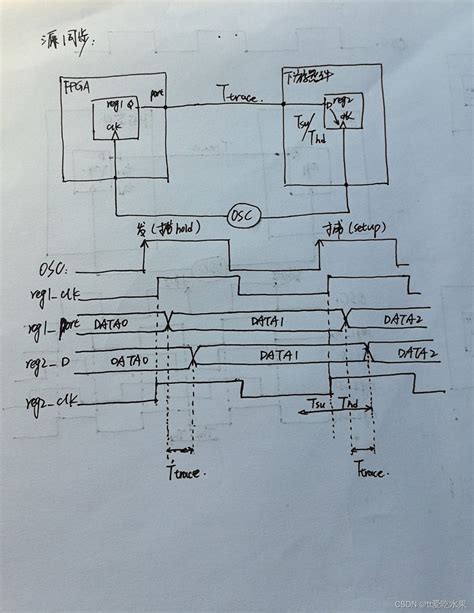 源同步：
FPGA
port
下游器件
reg1 Q
clk
Ttrace.
D reg2
clk
Tsu/Thd
OSC
发(hold)
(setup)
OSC:
reg1_clk
reg1_port DATA0 DATA1 DATA2
reg2_D DATA0 DATA1 DATA2
reg2_clk
Tsu Thd
Ttrace. Ttrace.
CSDN @tt爱吃水果